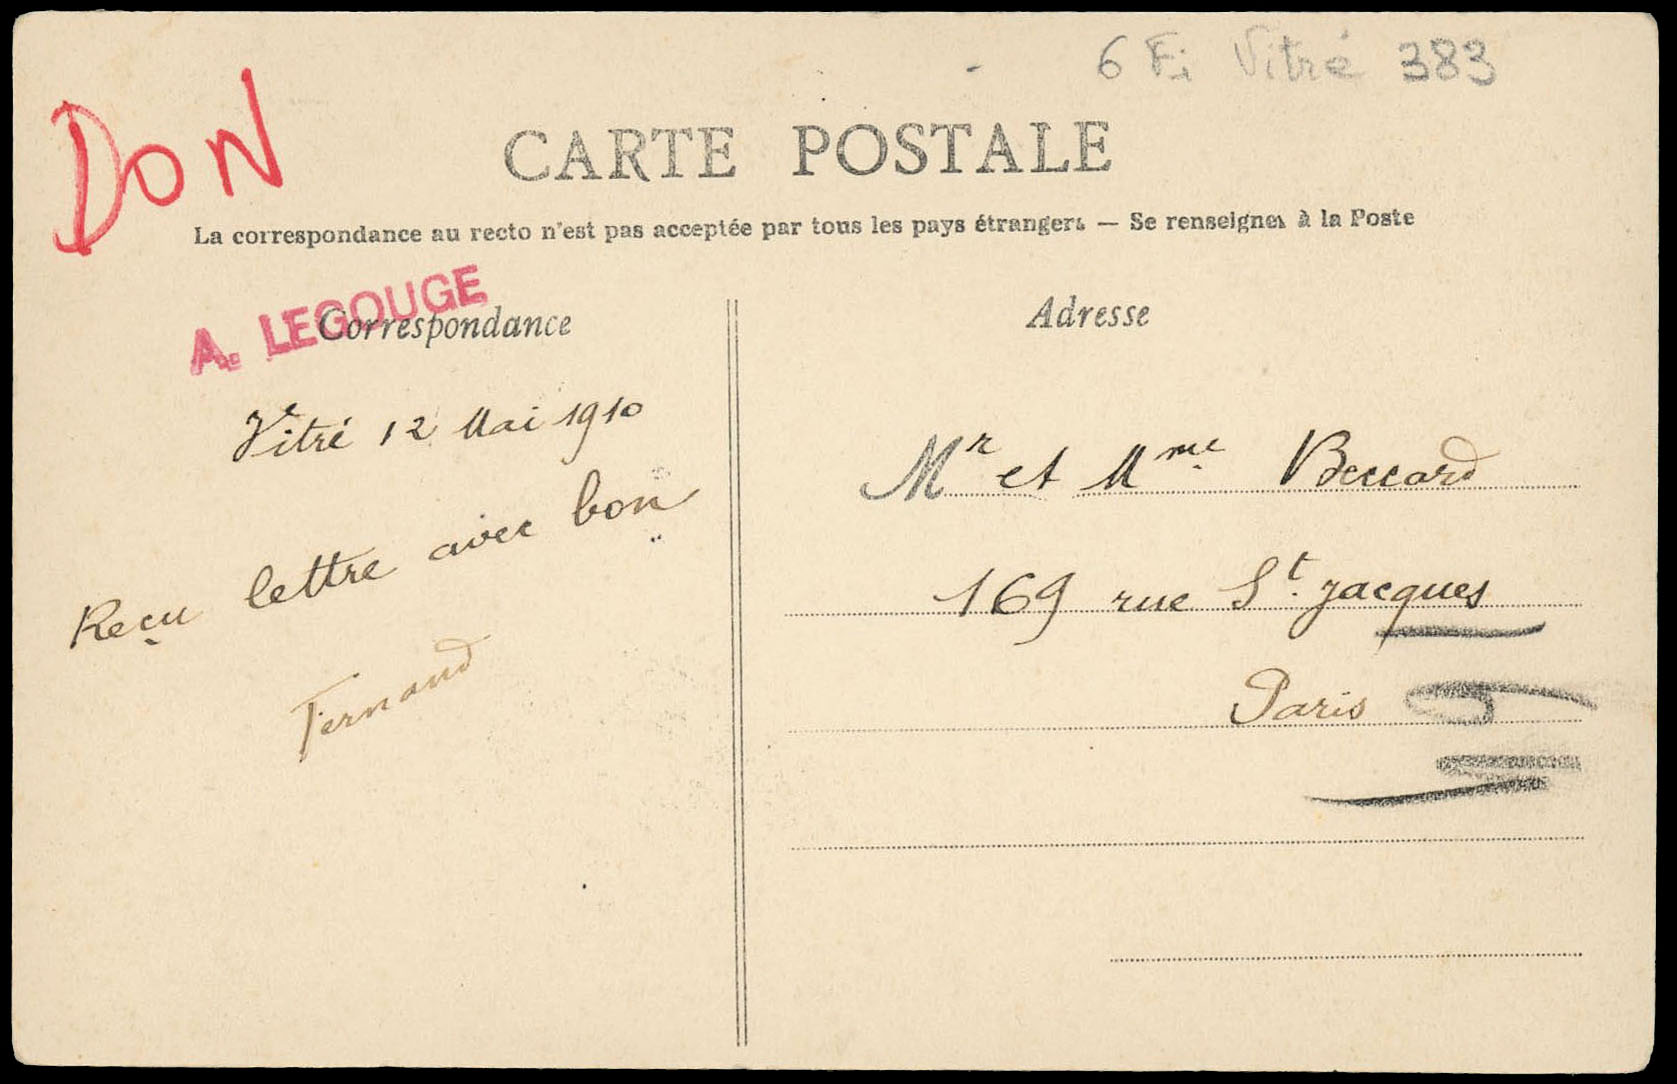 6 Fi Vitré 383
DON
CARTE POSTALE
La correspondance au recto n'est pas acceptée par tous les pays étrangers — Se renseigner à la Poste
A. LEGOUGE
Correspondance
Vitré 12 Mai 1910
Reçu lettre avec bon
Fernand
Adresse
Mr et Mme Beccard
169 rue St. Jacques
Paris